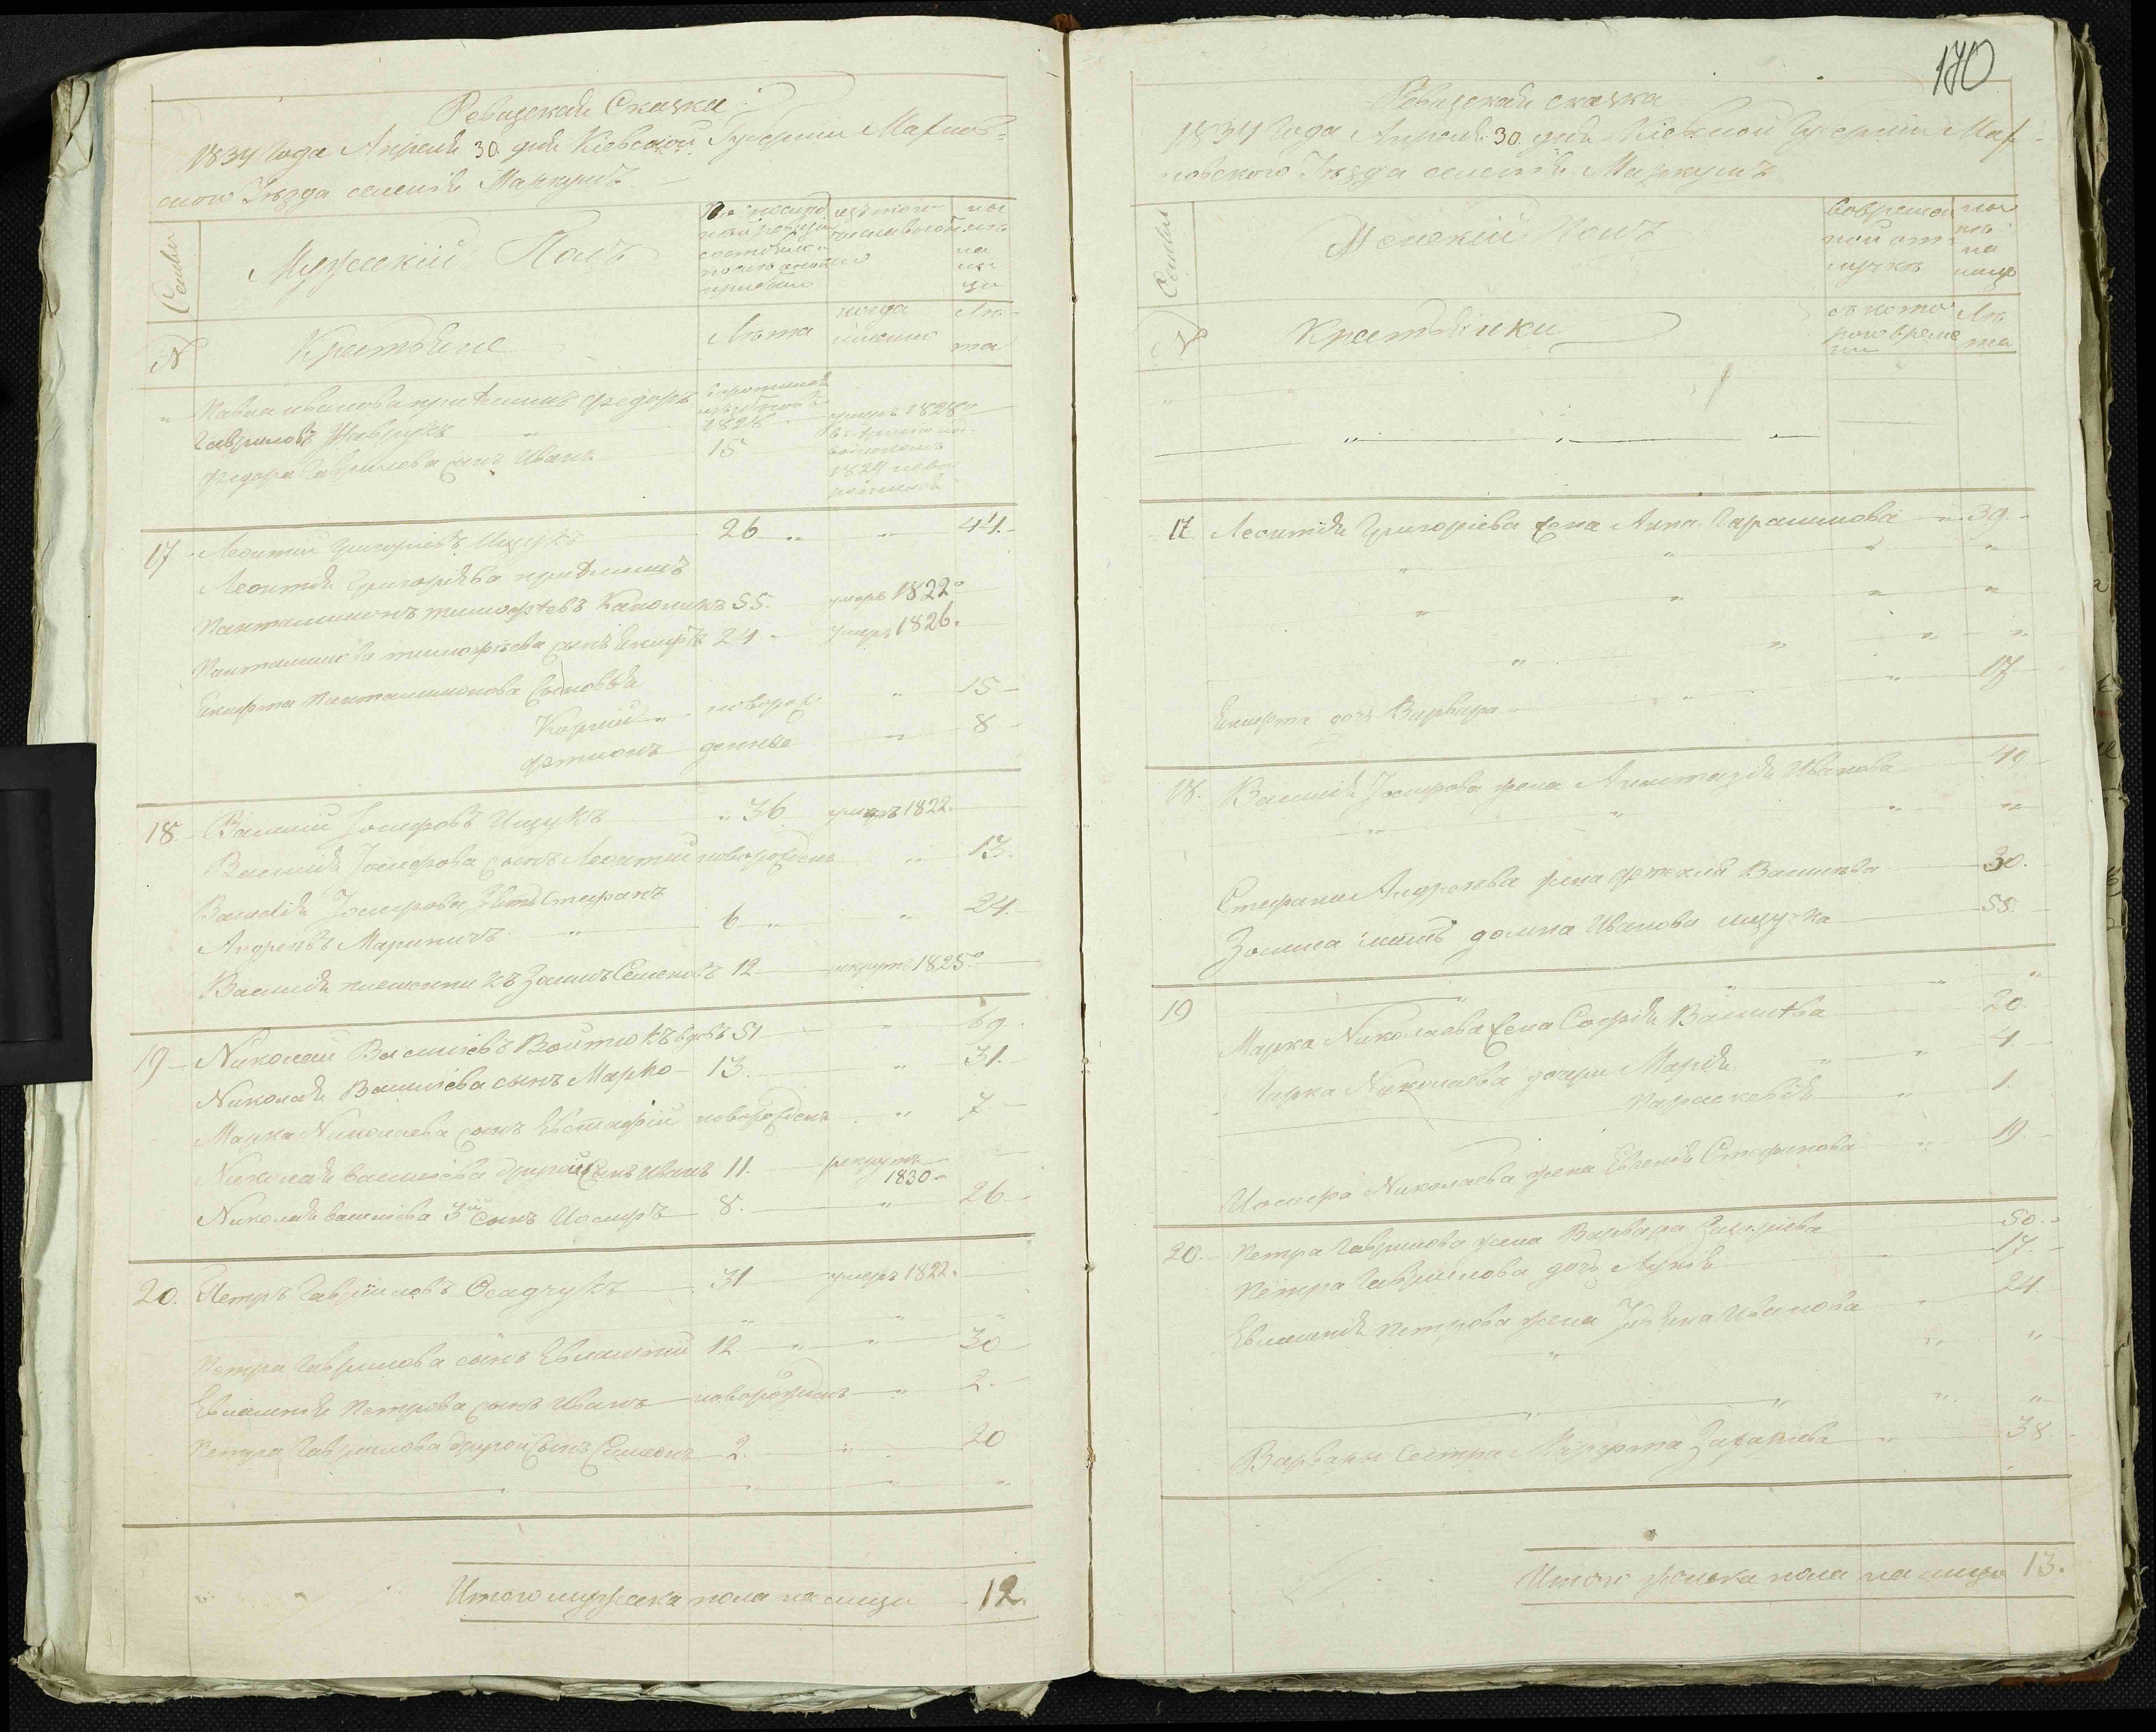 Ревизская Сказка
1834 года Апреля 30. дня Кіевской Губерніи Махнов-
ского Уѣзда селенія Маркушъ
Семьи
Мужескій Полъ
По последней ревизіи состояло и после оной прибыло
изъ того числа выбыло
ныне на лицо
№
Крестьяне
Лѣта
когда именно
Лѣта
" Павла Иванова пріймитъ Федоръ
Гавриловъ
1828
умеръ 1828º
Федора Гаврилова сынъ Иванъ 15
1824
17 Леонтій Григорьевъ Ищукъ 26 " " 44.
Леонтія Григорьева пріймитъ
Пантелимонъ Тимофеевъ 55. умеръ 1822º
Пантелимона Тимофеева сынъ Екифъ 24 умеръ 1826.
Екифа Пантелимонова Сыновья
Карпій " новорож " 15
Фтимонъ денные " 8
18. Василій Іосифовъ Ищукъ " 36 умеръ 1822.
Василія Іосифова сынъ Леонтій новорожденъ " 13.
Василія Іосифова Зять Стефанъ
Андреевъ Мариничъ " 6 " " 24.
Василія 12 рекрутъ 1825º
19 Николай Васильевъ Войтюкъ вдовъ 51 " 69.
Николая Васильева сынъ Марко 13. " 31.
Марка Николаева сынъ Евстафій новорожденъ " 7
Николая Васильева другой сынъ Иванъ 11. рекрутъ
1830
Николая Васильева 3й Сынъ Иосифъ 8. " 26
20. Петръ Гавриловъ Осадчукъ 31 умеръ 1822.
" " "
Петра Гаврилова сынъ Евлампій 12. " " 30
Евлампія Петрова сынъ Иванъ новорожденъ " 2.
Петра Гаврилова другой Сынъ Симеонъ 2. " 20
" " " "
Итого мужеска пола на лицо 12.
170
Ревизская сказка
1834 года Апреля 30. дня Кіевской Губерніи Мах-
новского Уѣзда селенія Маркушъ
Семьи
Женскій Полъ
во временной отлучкѣ
ныне на лицо
№
Крестьянки
съ которого времени
Лѣта
"
" " "
17. Леонтія Григоріева жена Анна Гарасимова " 39.
" " "
" " " "
" " " "
Екифа дочь Варвара " " 17
18. Василія Іосифова жена Анастазія Иванова 49
" " " "
Стефана Андреева жена Фекла Васильева 30.
Зосима мать Домна Иванова Ищучка 55.
19 " " " "
Марка Николаева жена Софія Васильева 20
Марка Николаева дочери Марія " " 4.
Параскевія " 1.
Иосифа Николаева жена Евгенія Стефанова " 19
20. Петра Гаврилова жена Варвара Захаріева 50.
Петра Гаврилова дочь Лукія 17.
Евлампія Петрова жена Иванова " 24
" " "
" " " "
Варвары сестра Марфа Захаріева " 38.
Итого женска пола на лицо 13.